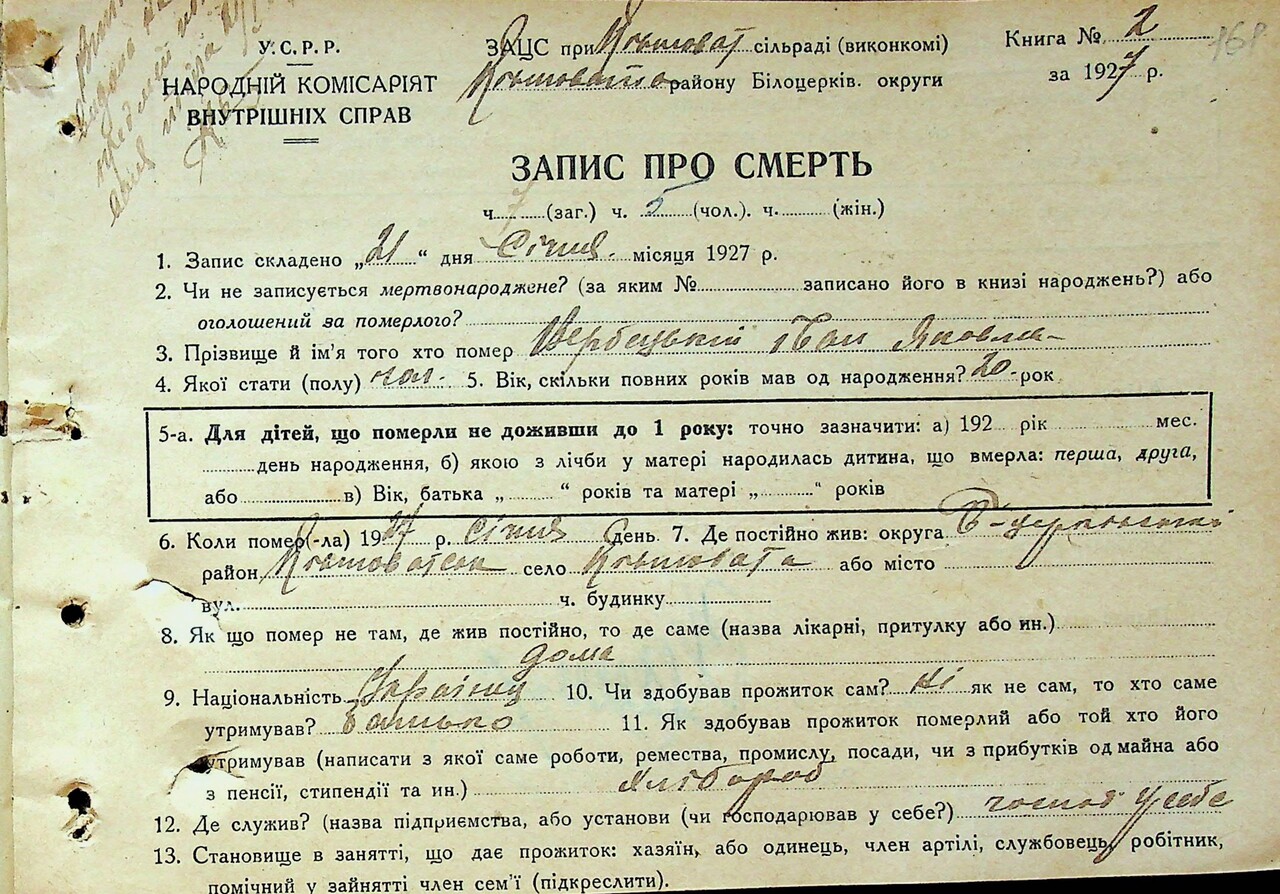 У.С.Р.Р.
НАРОДНІЙ КОМІСАРІЯТ
ВНУТРІШНІХ СПРАВ
ЗАЦС при Ковшоват сільраді (виконкомі)
району Білоцерків. округи
Книга № 2
за 1927 р.
168
ЗАПИС ПРО СМЕРТЬ
ч. 7 (заг.) ч. 5 (чол.). ч. (жін.)
1. Запис складено „21“ дня Січня місяця 1927 р.
2. Чи не записується мертвонароджене? (за яким № записано його в книзі народжень?) або
оголошений за померлого?
3. Прізвище й ім'я того хто помер Вербицький Іван Яковл-
4. Якої стати (полу) чол. 5. Вік, скільки повних років мав од народження? 20 рок
5-а. Для дітей, що померли не доживши до 1 року: точно зазначити: а) 192 рік мес.
день народження, б) якою з лічби у матері народилась дитина, що вмерла: перша, друга,
або в) Вік, батька „ “ років та матері „ “ років
6. Коли помер(-ла) 1927 р. Січня день. 7. Де постійно жив: округа Б-церківської
район Ковшоватськ село Ковшовата або місто
вул. ч. будинку
8. Як що помер не там, де жив постійно, то де саме (назва лікарні, притулку або ин.)
дома
9. Національність Українец 10. Чи здобував прожиток сам? Ні як не сам, то хто саме
утримував? батько 11. Як здобував прожиток померлий або той хто його
утримував (написати з якої саме роботи, ремества, промислу, посади, чи з прибутків од майна або
з пенсії, стипендії та ин.) Хлібороб
12. Де служив? (назва підприємства, або установи (чи господарював у себе?) господ у себе
13. Становище в занятті, що дає прожиток: хазяїн, або одинець, член артілі, службовець, робітник,
помічний у зайнятті член сем'ї (підкреслити).